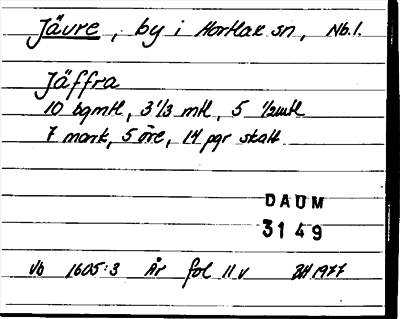 Jävre, by i Hortlax sn, Nb.l.
Jäffra
10 bgmtl, 3 1/3 mtl, 5 1/2mtl
7 mark, 5 öre, 14 pgr skatt
DAUM
3149
Vb 1605:3 År fol 11 v BH 1977